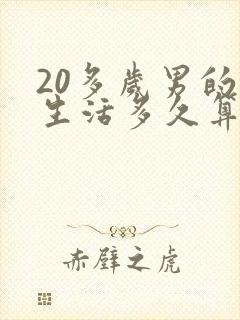 20多岁男的
生活多久算
赤壁之虎